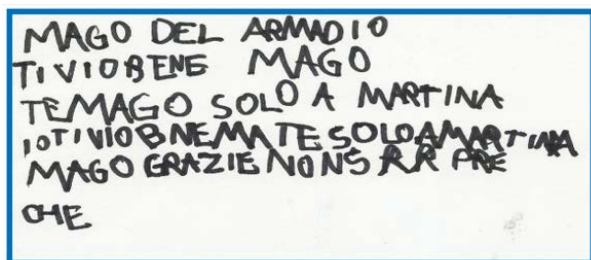 MAGO DEL ARMADIO
TI VIOBENE MAGO
TEMAGO SOLO A MARTINA
IOTIVIOBNEMATESOLOAMARTINA
MAGO GRAZIE NONS RR PRE
CHE